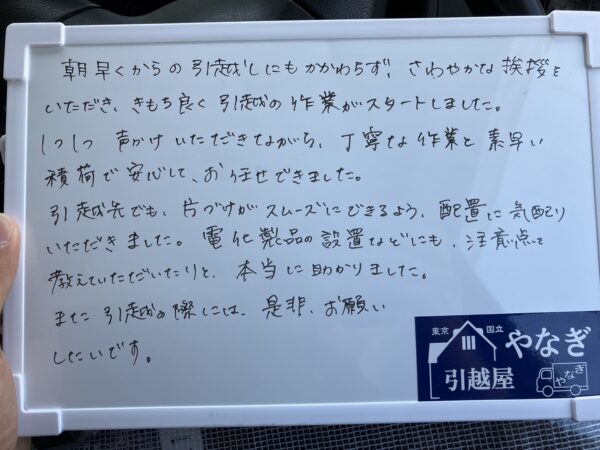 朝早くからの引越しにもかかわらず、さわやかな挨拶を
いただき、きもち良く引越の作業がスタートしました。
1つ1つ声かけいただきながら、丁寧な作業と素早い
積荷で安心して、お任せできました。
引越先でも、片づけがスムーズにできるよう、配置に気配り
いただきました。電化製品の設置などにも、注意点を
教えていただいたりと、本当に助かりました。
また引越の際には、是非、お願い
したいです。
東京 国立
やなぎ
引越屋
やなぎ